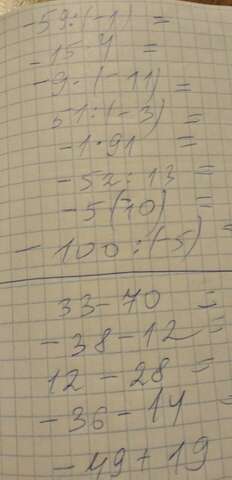 -59:(-1) =
-15·4 =
-9·(-11) =
51:(-3) =
-1·91 =
-52:13 =
-5(70) =
-100:(-5) =
33-70 =
-38-12 =
12-28 =
-36-14 =
-49+19